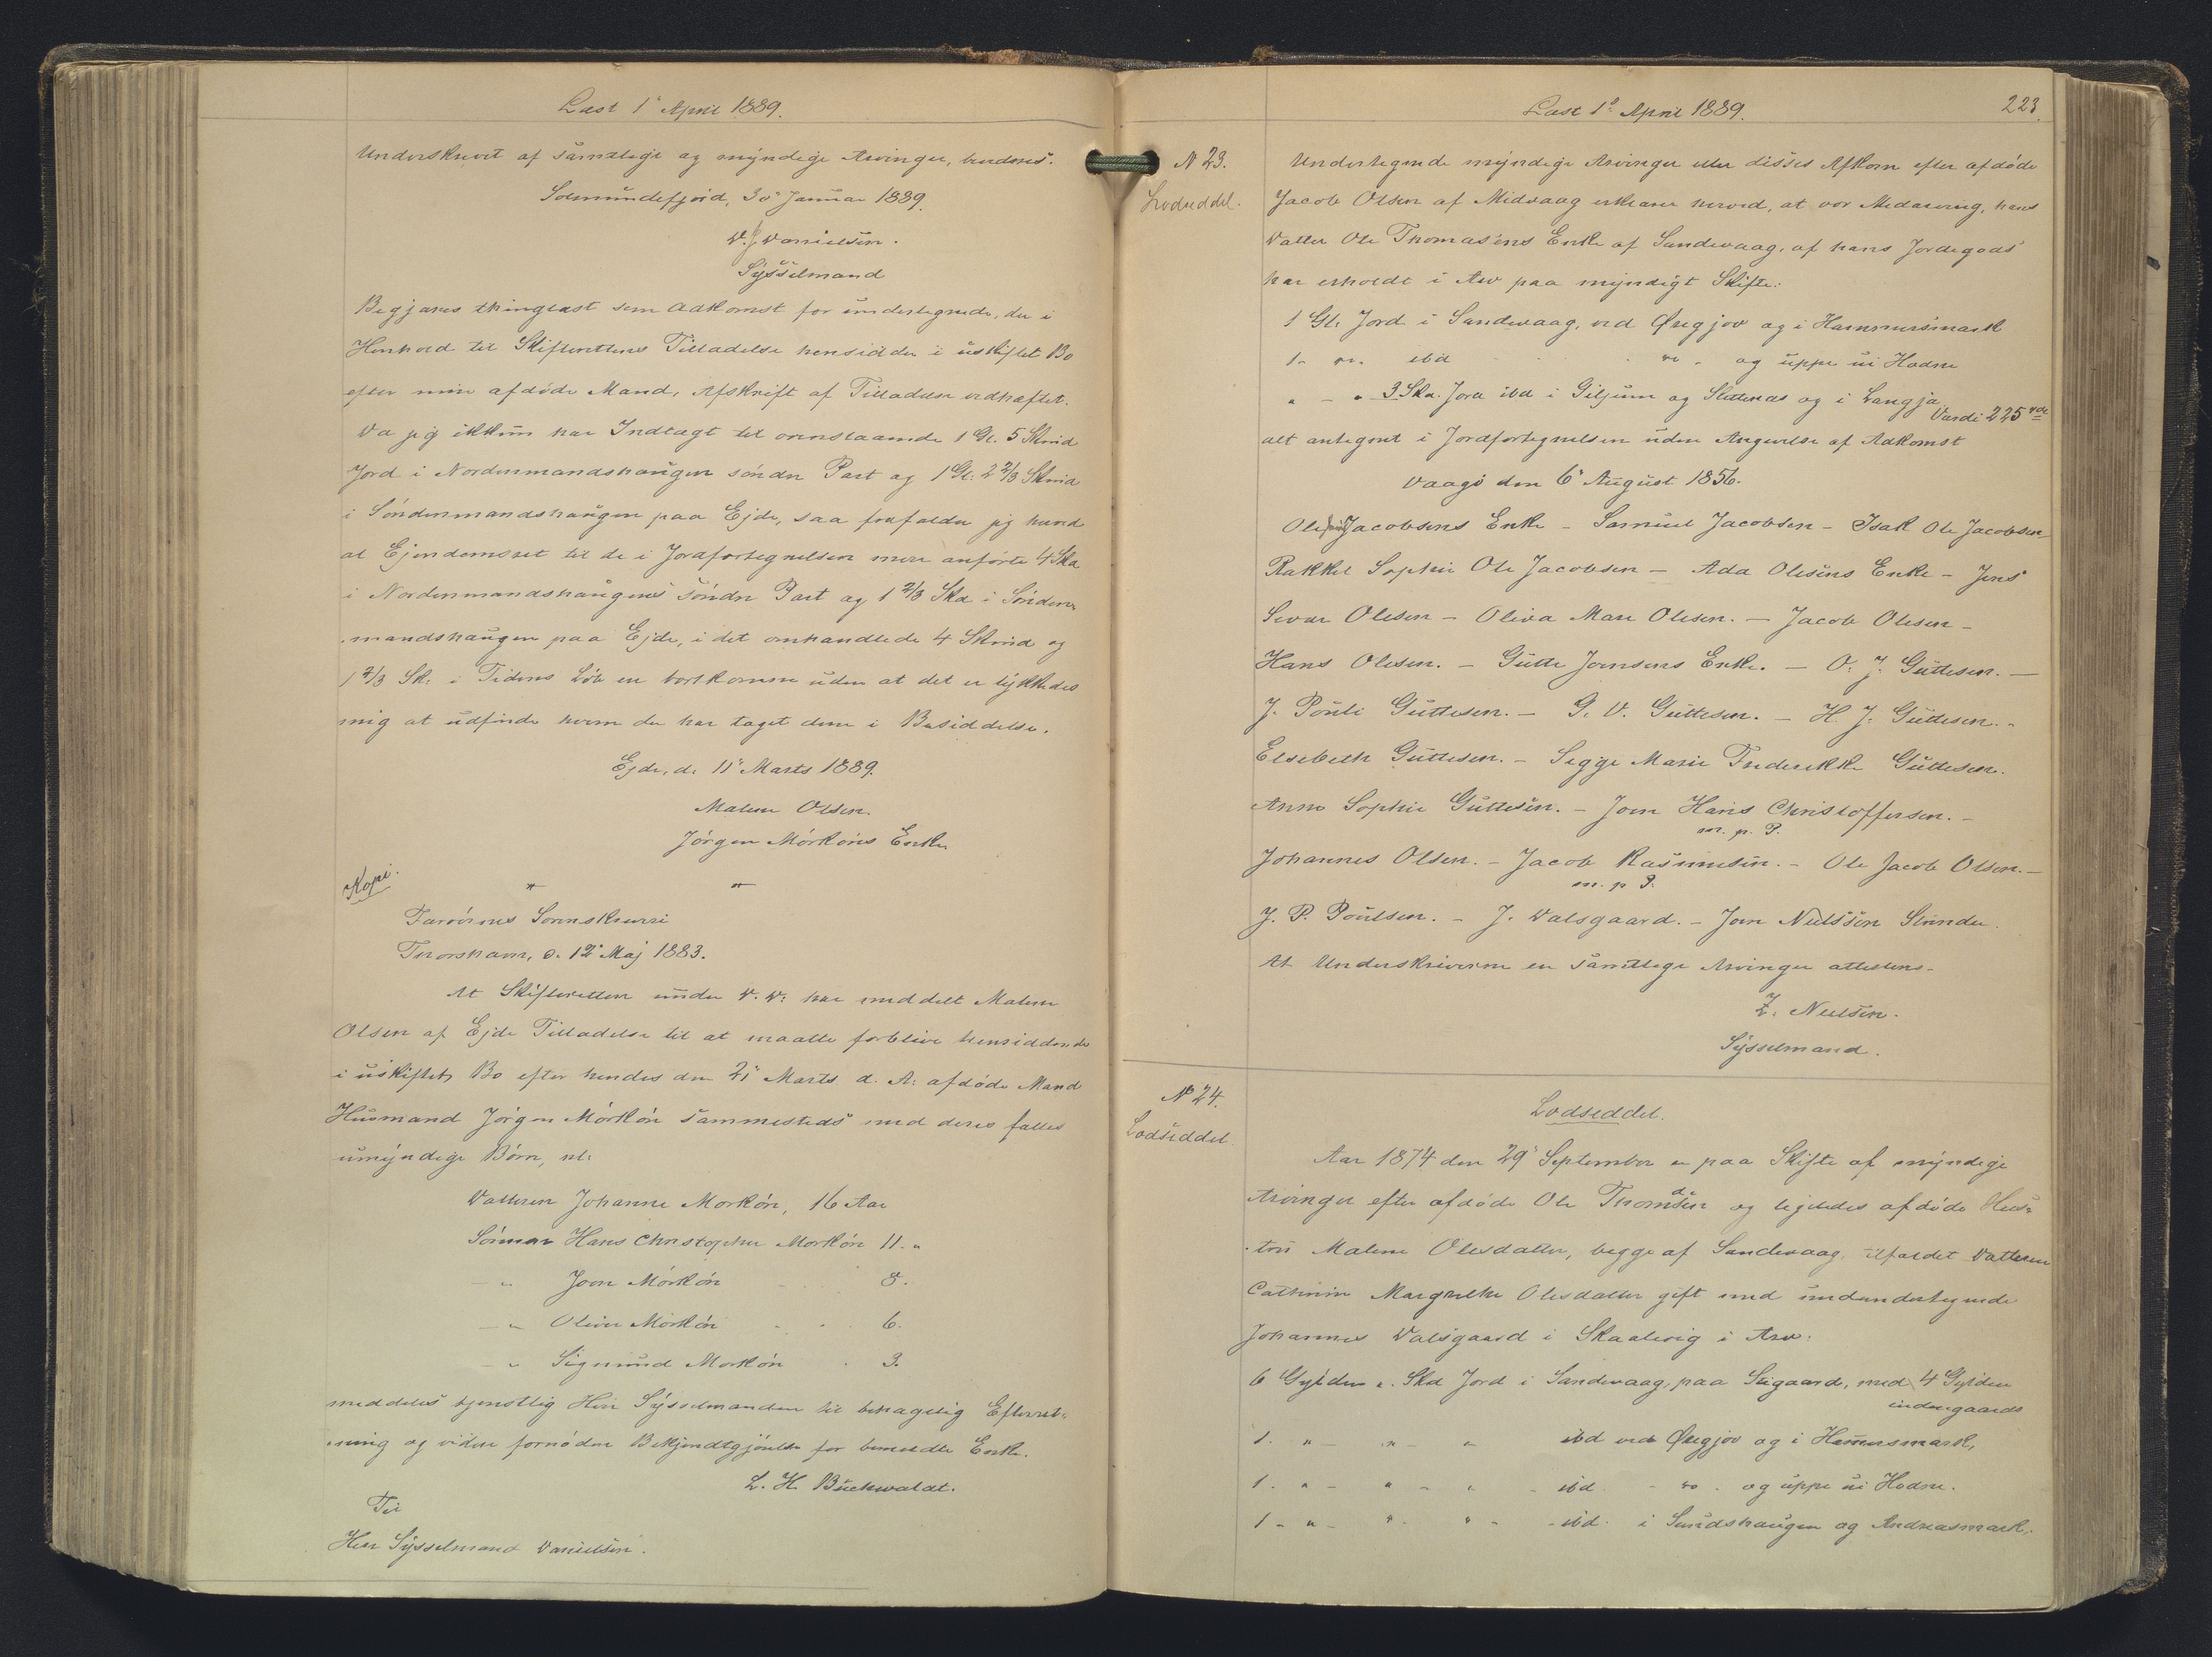 Læst 1' April 1889.
Underskrevet af samtlige og myndige Arvinger, bevidnes.
Solmundefjord, 30' Januar 1889.
D. J. Danielsen.
Sysselmand
Begjæres thinglæst som Adkomst for undertegnede, der i
Henhold til Skifterettens Tilladelse hensidder i uskiftet Bo
efter min afdøde Mand, Afskrift af Tilladelsen vedhæftet.
Da jeg ikkun har Indtægt til ovenstaaende 1 Gl. 5 Skind
Jord i Nordenmandshaugen søndre Part og 1 Gl. 2 2/3 Skind
i Søndenmandshaugen paa Ejde, saa frafalder jeg
al Ejendomsret til de i Jordfortegnelsen mere anførte 4 Skd
i Nordenmandshaugens søndre Part og 1 2/3 Skd i Sønden-
-mandshaugen paa Ejde, i det omhandlede 4 Skind og
1 2/3 Sk. i Tidens Løb er bortkomne uden at det er lykkedes
mig at udfinde hvem der har taget dem i Besiddelse.
Ejde, d. 11' Marts 1889.
Malene Olsen
Jørgen Mörköres Enke
Kopi.
Færøernes Sorenskriveri
Thorshavn, d. 12' Maj 1883.
At Skifteretten under D. D. har meddelt Malene
Olsen af Ejde Tilladelse til at maatte forblive hensiddende
i uskiftet Bo efter hendes den 21' Marts d. A. afdøde Mand
Husmand Jørgen Mörköre sammesteds med deres fælles
umyndige Børn, nl.
Datteren Johanne Morköre, 16 Aar
Sønnen Hans Christopher Morköre 11. "
- " Joen Mörköre 8.
- " Oliver Mörköre 6.
- " Sigmund Morköre 3.
meddeles tjenstlig Herr Sysselmanden til behagelig Efterret-
-ning og videre fornøden Bekjendtgjørelse for bemeldte Enke.
L. H. Buchwaldt.
Til
Herr Sysselmand Danielsen.
Læst 1' April 1889.
223.
N 23.
Lodseddel.
Undertegnede myndige Arvinger eller disses Afkom efter afdøde
Jacob Olsen af Midvaag erklærer herved, at vor Medarving, hans
Datter Ole Thomasens Enke af Sandevaag, af hans Jordegods
har erholdt i Arv paa myndigt Skifte:
1 Gl. Jord i Sandevaag, ved Øregjov og i Hammersmark
1 - do. ibd do - og uppe ui Hodne
" - " 3 Skd. Jord ibd i Giljum og Slettenæs og i Langja
Værdi 225 rdl
alt antegnet i Jordfortegnelsen uden Angivelse af Adkomst
Vaagø den 6' August 1856.
Ole Jacobsens Enke - Samuel Jacobsen - Isak Ole Jacobsen
Rakkel Sophie Ole Jacobsen - Ada Olesens Enke - Jens
Sivar Olesen - Oliva Mare Olesen. - Jacob Olesen -
Hans Olesen. - Gutte Joensens Enke. - O. J. Guttesen. -
J. Pouli Guttesen. - G. V. Guttesen. - H. J. Guttesen. -
Elsebeth Guttesen. - Sigge Marie Frederikke Guttesen.
Anne Sophie Guttesen. - Joen Hans Christoffersen. -
m. p. P.
Johannes Olsen. - Jacob Rasmusen. - Ole Jacob Olsen. -
m. p. P.
J. P. Poulsen. - J. Dalsgaard. - Joen Nielssen
At Underskriverne er samtlige Arvinger attesteres -
Z. Nielsen.
Sysselmand.
N° 24.
Lodseddel.
Lodseddel.
Aar 1874 den 29' September er paa Skifte af myndige
Arvinger efter afdøde Ole Thomasen og ligeledes afdøde Hus-
-tru Malene Olesdatter, begge af Sandevaag, tilfaldet Datteren
Cathrine Margrethe Olesdatter gift med undertegnede
Johannes Dalsgaard i Skaalevig i Arv:
6 Gylden ". Skd Jord i Sandevaag, paa Sigaard, med 4 Gylden
indengaards
1. " - " - " ibd ved Øregjov og i Hamersmark,
1. " - " - " - ibd. - do. og uppe ui Hodne.
1 - " - " - " - ibd. i Sundshaugen og Andreasmark.